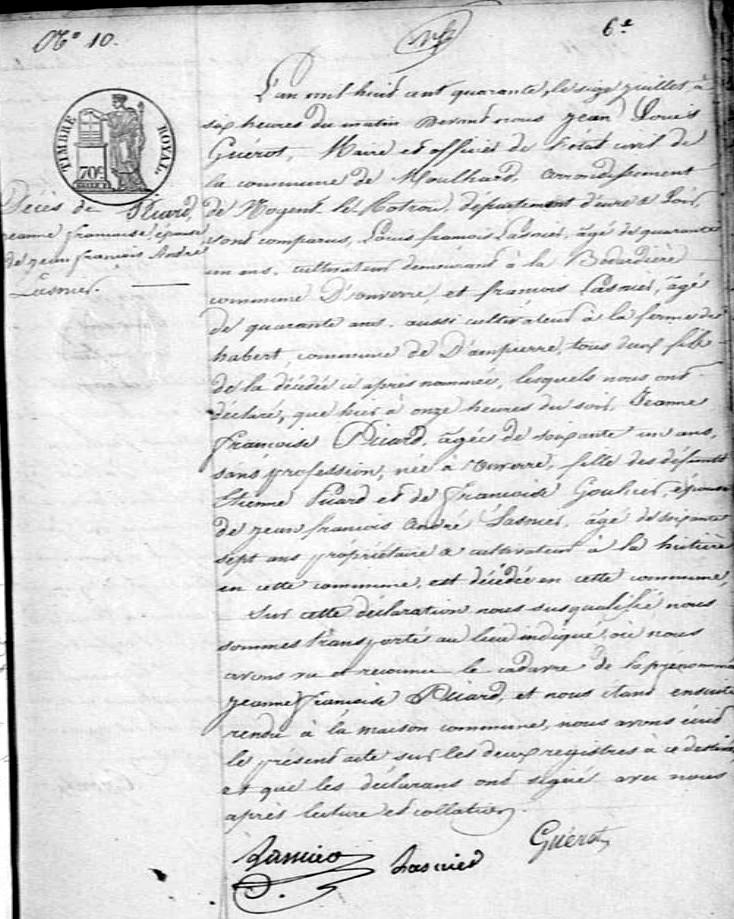 N° 10.
6.e
TIMBRE ROYAL
70c
Décès de Picard,
jeanne françoise, épouse
de jean françois André
Lasnier.
L'an mil huit cent quarante, le seize juillet à
six heures du matin Devant nous jean Louis
Guérot, Maire et officier de l'état civil de
la commune de Moulhard arrondissement
de Nogent-le-Rotrou, département d'eure & Loir,
sont comparus, Louis françois Lasnier, âgé de quarante
un ans, cultivateur demeurant à la
commune D'unverre, et françois Lasnier, âgé
de quarante ans, aussi cultivateur à la ferme de
habert commune de Dampierre, tous deux fils
de la décédée ci après nommée, lesquels nous ont
déclaré, que hier à onze heures du soir, Jeanne
françoise Picard, âgée de soixante un ans,
sans profession, née à Unverre, fille des défunts
Etienne Picard et de françoise Goulier, épouse
de jean françois André Lasnier, âgé de soixante
sept ans propriétaire & cultivateur à la
en cette commune, est décédée en cette commune,
Sur cette déclaration nous susqualifié nous
sommes transporté au lieu indiqué, où nous
avons vu et reconnu le cadavre de la prénommée
jeanne françoise Picard, et nous étant ensuite
rendu à la maison commune, nous avons écrit
le présent acte sur les deux registres à ce destinés
et que les déclarans ont signés avec nous
après lecture et collation.
Lasnier Lasnier Guérot